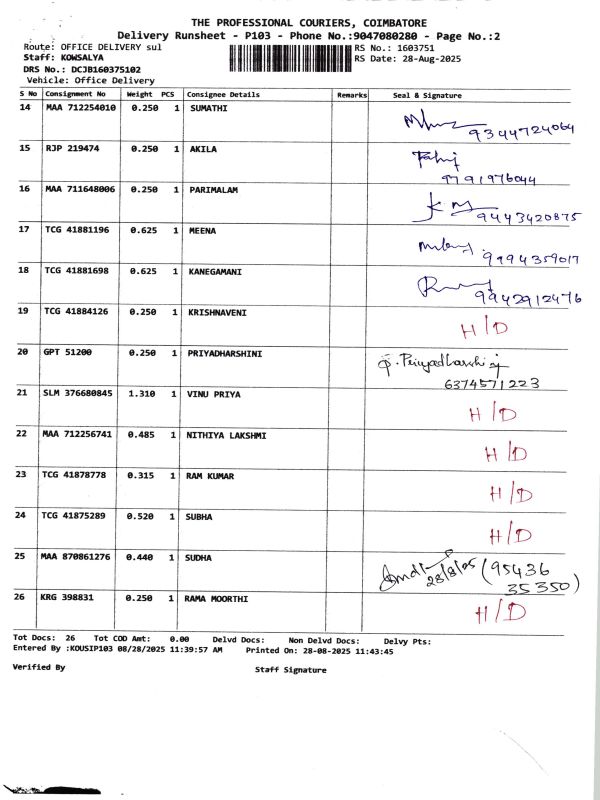 THE PROFESSIONAL COURIERS, COIMBATORE
Delivery Runsheet - P103 - Phone No.:9047080280 - Page No.:2
Route: OFFICE DELIVERY sul RS No.: 1603751
Staff: KOWSALYA RS Date: 28-Aug-2025
DRS No.: DCJB160375102
Vehicle: Office Delivery
S No Consignment No Weight PCS Consignee Details Remarks Seal & Signature
14 MAA 712254010 0.250 1 SUMATHI
9344724064
15 RJP 219474 0.250 1 AKILA
9791976044
16 MAA 711648006 0.250 1 PARIMALAM
9443420875
17 TCG 41881196 0.625 1 MEENA
9994359017
18 TCG 41881698 0.625 1 KANEGAMANI
9942912476
19 TCG 41884126 0.250 1 KRISHNAVENI
H/D
20 GPT 51200 0.250 1 PRIYADHARSHINI
Priyadharshini
6374571223
21 SLM 376680845 1.310 1 VINU PRIYA
H/D
22 MAA 712256741 0.485 1 NITHIYA LAKSHMI
H/D
23 TCG 41878778 0.315 1 RAM KUMAR
H/D
24 TCG 41875289 0.520 1 SUBHA
H/D
25 MAA 870861276 0.440 1 SUDHA
28/8/25 (95436
35350)
26 KRG 398831 0.250 1 RAMA MOORTHI
H/D
Tot Docs: 26 Tot COD Amt: 0.00 Delvd Docs: Non Delvd Docs: Delvy Pts:
Entered By :KOUSIP103 08/28/2025 11:39:57 AM Printed On: 28-08-2025 11:43:45
Verified By Staff Signature